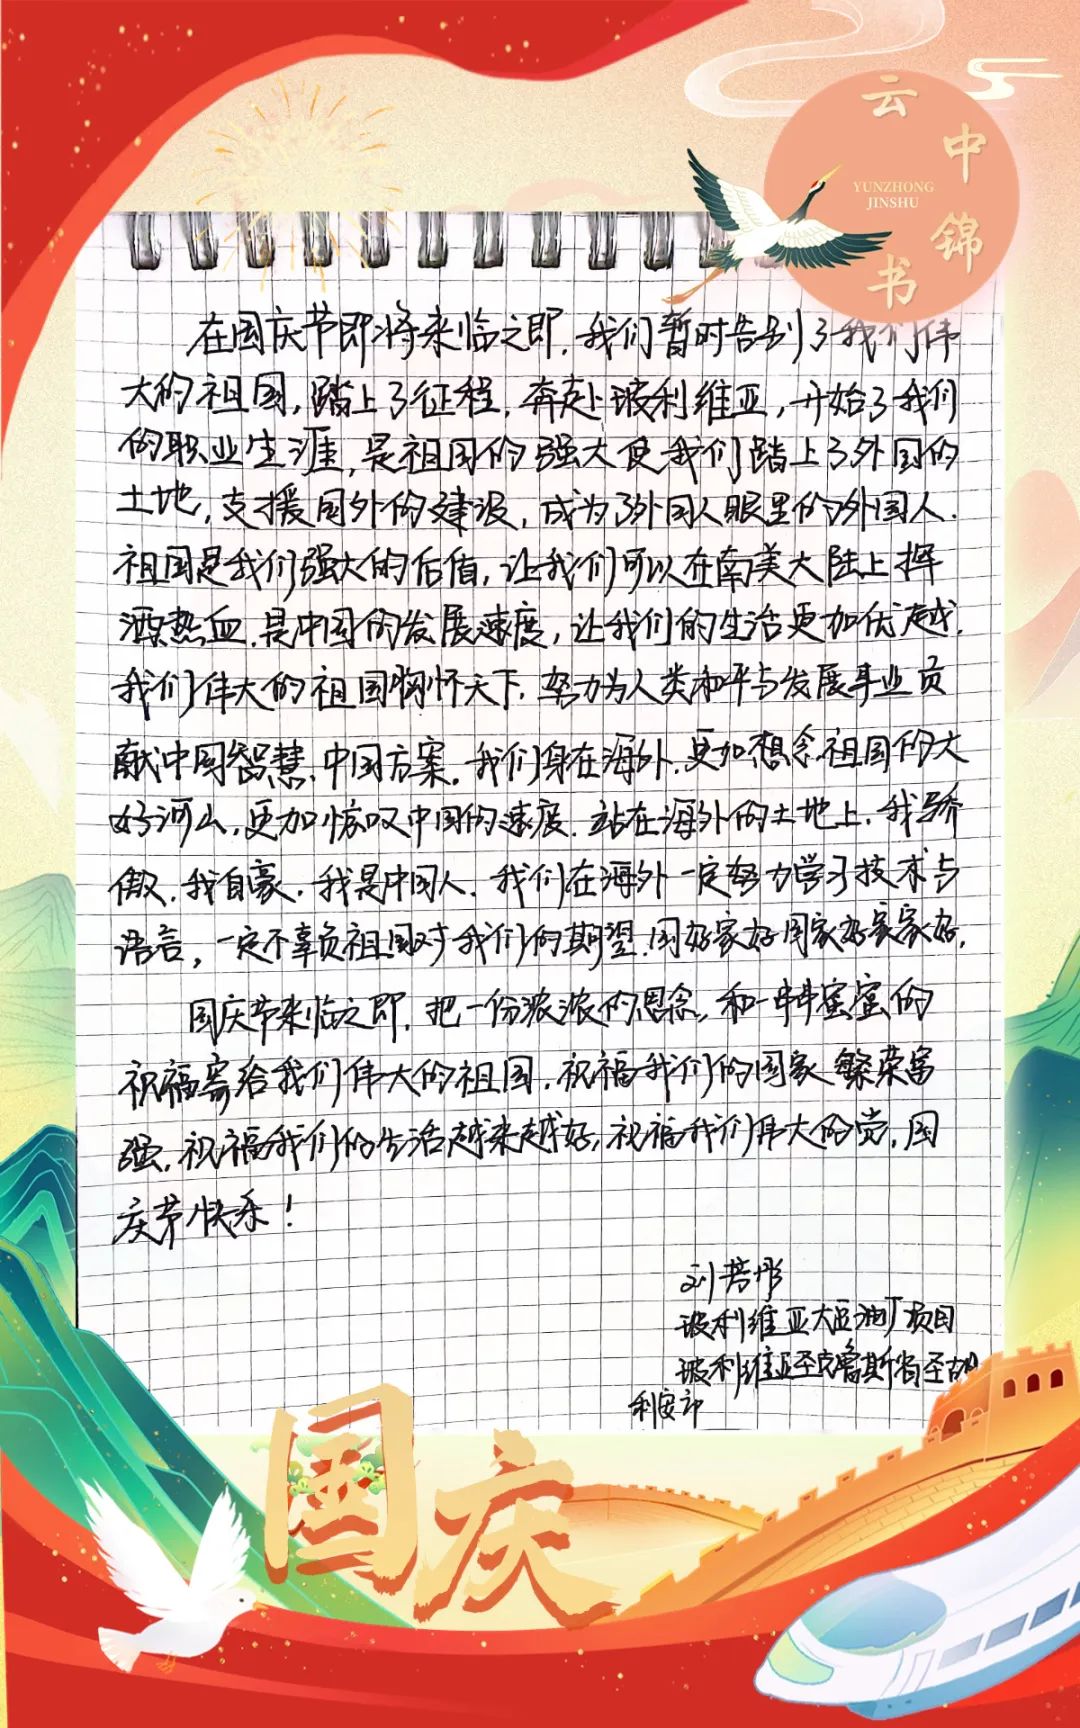 云中锦书
YUNZHONG
JINSHU
在国庆节即将来临之即，我们暂时告别了我们伟
大的祖国，踏上了征程，奔赴玻利维亚，开始了我们
的职业生涯，是祖国的强大使我们踏上了外国的
土地，支援国外的建设，成为了外国人眼里的外国人.
祖国是我们强大的后盾，让我们可以在南美大陆上挥
洒热血.是中国的发展速度，让我们的生活更加优越.
我们伟大的祖国胸怀天下，努力为人类和平与发展事业贡
献中国智慧、中国方案.我们身在海外，更加想念祖国的大
好河山，更加惊叹中国的速度.站在海外的土地上，我骄
傲，我自豪，我是中国人.我们在海外一定努力学习技术与
语言，一定不辜负祖国对我们的期望.国好家好国家好家家好.
国庆节来临之即，把一份浓浓的思念，和一串串蜜蜜的
祝福寄给我们伟大的祖国，祝福我们的国家繁荣富
强，祝福我们的生活越来越好，祝福我们伟大的党，国
庆节快乐！
刘芳彤
玻利维亚大豆油厂项目
玻利维亚圣克鲁斯省圣胡
利安市
国庆